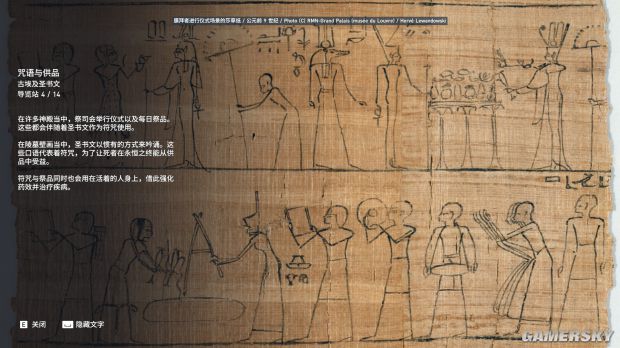 祭拜者进行仪式场景的莎草纸 / 公元前 9 世纪 / Photo (C) RMN-Grand Palais (musée du Louvre) / Hervé Lewandowski
咒语与供品
古埃及圣书文
导览站 4 / 14
在许多神殿当中，祭司会举行仪式以及每日祭品。
这些都会伴随着圣书文作为符咒使用。
在陵墓壁画当中，圣书文以惯有的方式来吟诵。这
些口语代表着符咒，为了让死者在永恒之终能从供
品中受益。
符咒与祭品同时也会用在活着的人身上，借此强化
药效并治疗疾病。
E 关闭
隐藏文字
GAMERSKY